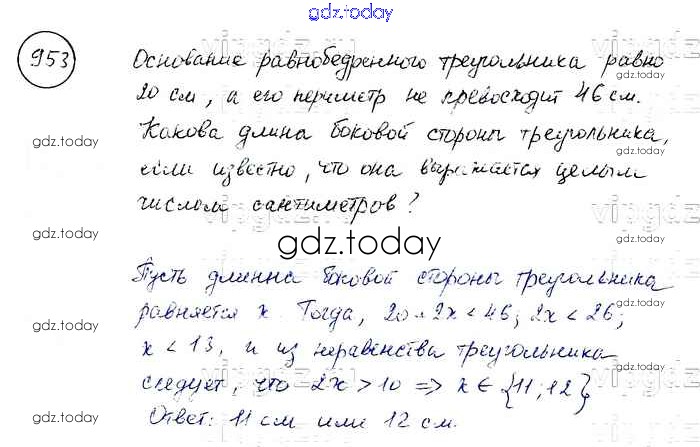 gdz.today
953
Основание равнобедренного треугольника равно
20 см, а его периметр не превосходит 46 см.
Какова длина боковой стороны треугольника,
gdz.today
gdz.today
если известно, что она выражается целым
числом сантиметров?
gdz.today
gdz.today
gdz.today
Пусть длинна боковой стороны треугольника
равняется x. Тогда, 20+2x < 46; 2x < 26;
gdz.today
gdz.today
x < 13, и из неравенства треугольника
следует, что 2x > 10 => x ∈ {11; 12}
gdz.today
gdz.today
Ответ: 11 см или 12 см.